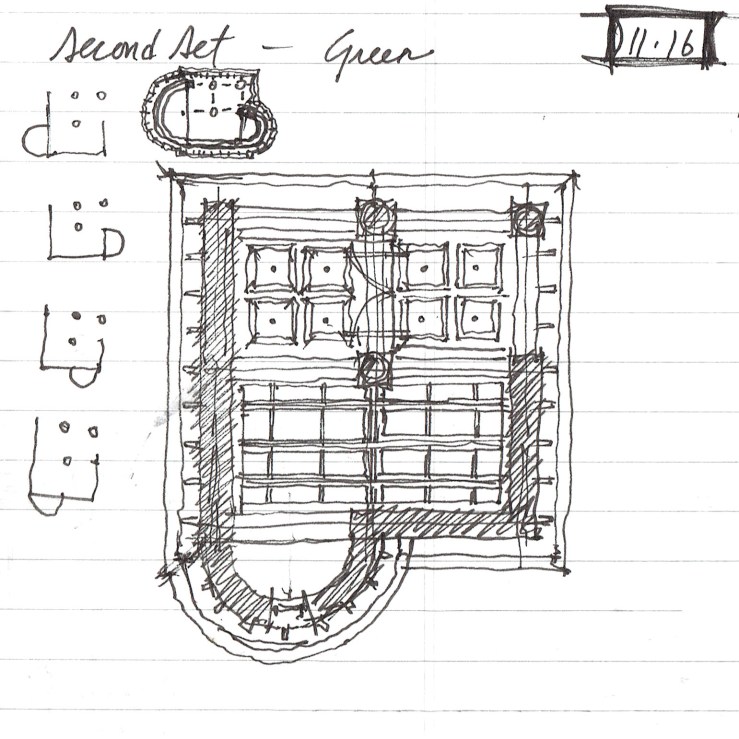 Second Set - Green
11.16